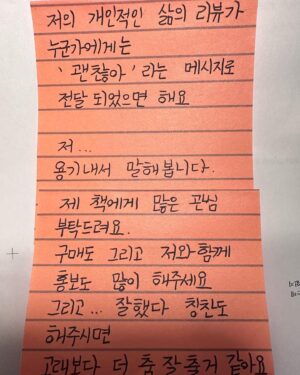 저의 개인적인 삶의 리뷰가
누군가에게는
'괜찮아' 라는 메시지로
전달 되었으면 해요
저...
용기내서 말해봅니다.
제 책에게 많은 관심
부탁드려요.
구매도 그리고 저와함께
홍보도 많이 해주세요
그리고... 잘했다 칭찬도
해주시면
고래보다 더 춤 잘 출거 같아요